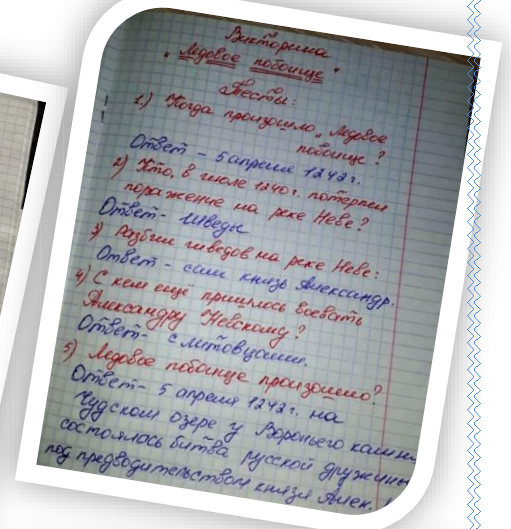 Викторина
"Ледовое побоище"
Тесты:
1.) Когда произошло „Ледовое
побоище?
Ответ - 5 апреля 1242г.
2) Кто, в июле 1240г. потерпел
поражение на реке Неве?
Ответ - Шведы
3) Разбил шведов на реке Неве:
Ответ - сам князь Александр.
4) С кем ещё пришлось воевать
Александру Невскому?
Ответ - с литовцами.
5) Ледовое побоище произошло?
Ответ - 5 апреля 1242г. на
Чудском озере у Вороньего камня
состоялась битва русской дружины
под предводительством князя Алек.